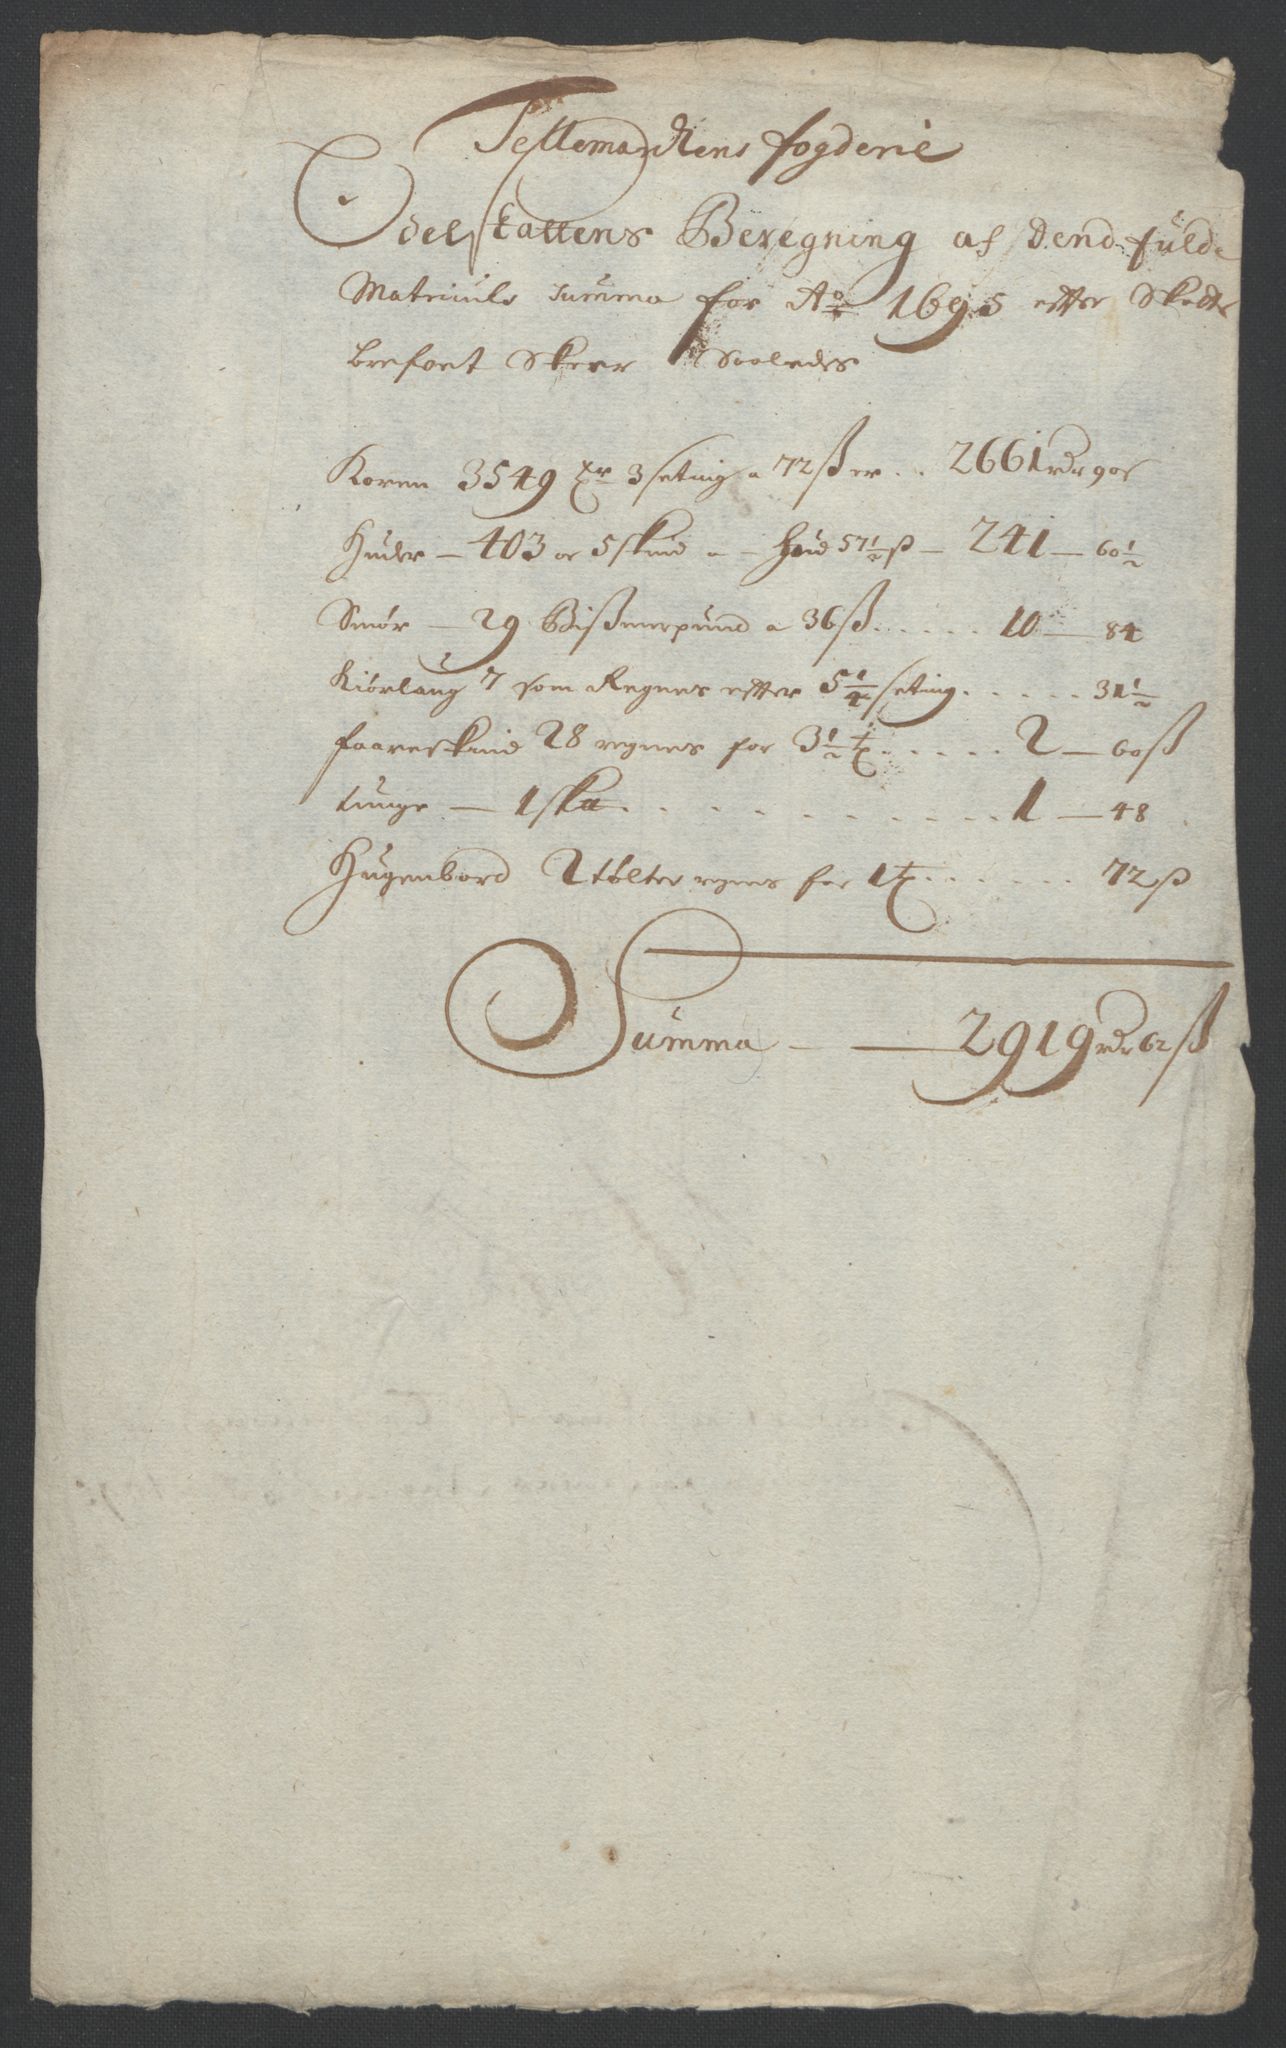 Tellemarckens fogderie
Odelskattens Beregning af dend fulde
Matriculs Summa for Ao 1695 efter Skatte
brefvet Skeer Saaledes
Koren 3549 tr 3 seting a 72 ß er .. 2661 rdr 90 ß
Huder — 403 oc 5 skind a — Hud 57½ ß — 241 — 60½
Smör — 29 Bißmerpund a 36 ß ..... 10 — 84
Kiörlaug 7 som Regnes efter 5¼ seting ..... 31½
faareskind 28 regnes for 3½ t ..... 2 — 60 ß
tunge — 1 ska ........... 1 — 48
Hugenbord 2 tölter regnes for 1 t ...... 72 ß
Summa — — 2919 rdr 62 ß